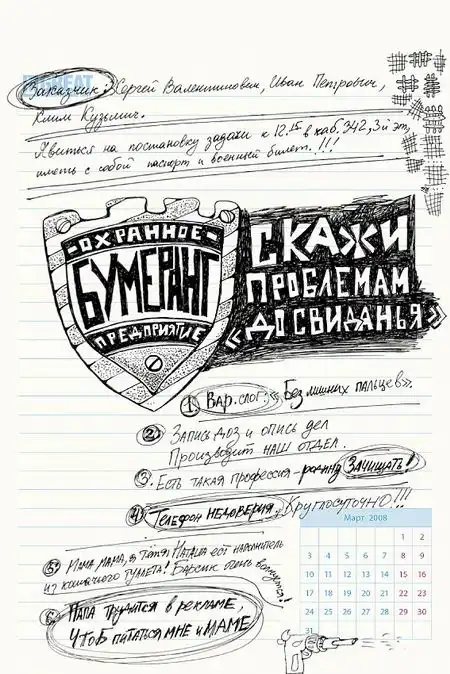 Заказчик: Сергей Валентинович, Иван Петрович,
Клим Кузьмич.
Явиться на постановку задачи к 12.15 в каб. 342, 3й эт,
иметь с собой паспорт и военный билет. !!!
-ОХРАННОЕ-
БУМЕРАНГ
ПРЕДПРИЯТИЕ
СКАЖИ
ПРОБЛЕМАМ
«ДОСВИДАНЬЯ»
1 Вар. слог: «Без лишних пальцев».
2. Запись доз и опись дел
Производит наш отдел.
3. Есть такая профессия - родину ЗАЧИЩАТЬ!
4) Телефон НЕДОВЕРИЯ. Круглосуточно!!!
Март 2008
1 2
3 4 5 6 7 8 9
10 11 12 13 14 15 16
17 18 19 20 21 22 23
24 25 26 27 28 29 30
31
5. Мама мама, а тётя Наташа ест наполнитель
из кошачьего туалета! Барсик очень волнуется!!
6. Папа трудится в рекламе,
чтоб питаться мне и маме